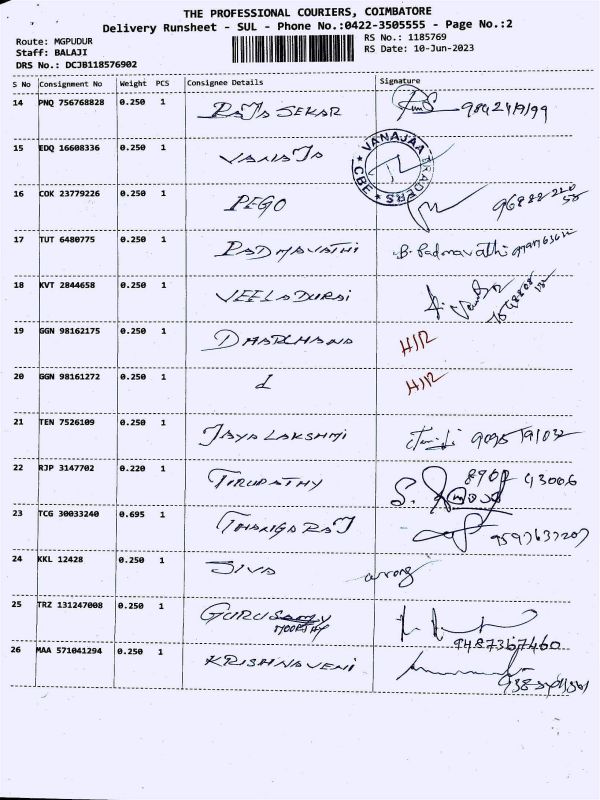 THE PROFESSIONAL COURIERS, COIMBATORE
Delivery Runsheet - SUL - Phone No.:0422-3505555 - Page No.:2
Route: MGPUDUR RS No.: 1185769
Staff: BALAJI RS Date: 10-Jun-2023
DRS No.: DCJB118576902
S No Consignment No Weight PCS Consignee Details Signature
14 PNQ 756768828 0.250 1 RAJA SEKAR
15 EDQ 16608336 0.250 1 VANAJA VANAJAA TRADERS CBE
16 COK 23779226 0.250 1 PEGO
17 TUT 6480775 0.250 1 PADMAVATHI B. Padmavathi
18 KVT 2844658 0.250 1 VEELADURAI
19 GGN 98162175 0.250 1 H/R
20 GGN 98161272 0.250 1 H/R
21 TEN 7526109 0.250 1 JAYALAKSHMI 9095191032
22 RJP 3147702 0.220 1 TIRUPATHY
23 TCG 30033240 0.695 1 THANGARAJ 9597637207
24 KKL 12428 0.250 1 SIVA wrong
25 TRZ 131247008 0.250 1 GURU
MOORTHY 9487367460
26 MAA 571041294 0.250 1 KRISHNAVENI